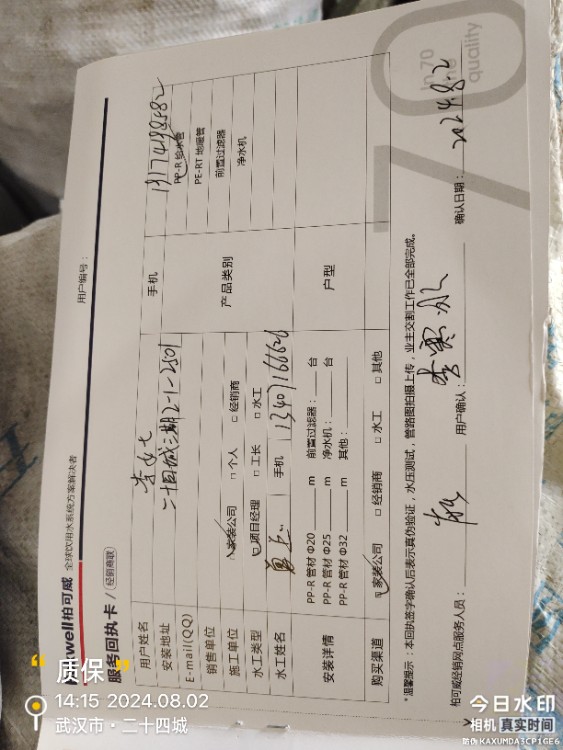 用户编号：
柏可威 全球饮用水系统方案解决者
服务回执卡 / (经销商联)
用户姓名 手机
安装地址 二十四城三期2-1-2501
E-mail(QQ)
销售单位
施工单位 家装公司 □个人 □经销商
水工类型 项目经理 □工长 □水工
水工姓名 手机 13407166626
产品类别
PP-R 给水管
PE-RT 地暖管
前置过滤器
净水机
安装详情
PP-R 管材 Φ20 m 前置过滤器： 台
PP-R 管材 Φ25 m 净水机： 台
PP-R 管材 Φ32 m 其他：
户型
购买渠道 家装公司 □经销商 □水工 □其他
*温馨提示：本回执签字确认后表示真伪验证，水压测试，管路图拍摄上传，业主交割工作已全部完成。
柏可威经销网点服务人员： 用户确认： 确认日期：2024.8.2
70
quality
“质保”
14:15 2024.08.02
武汉市·二十四城
今日水印
相机 真实时间
防伪 KAXUMDA3CP1GE6